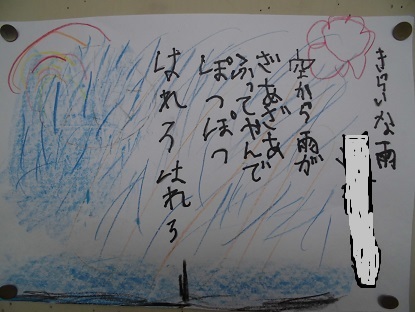 きらいな雨
空から雨が
ざあざあ
ふってやんで
ぽっぽっ
はれろはれろ